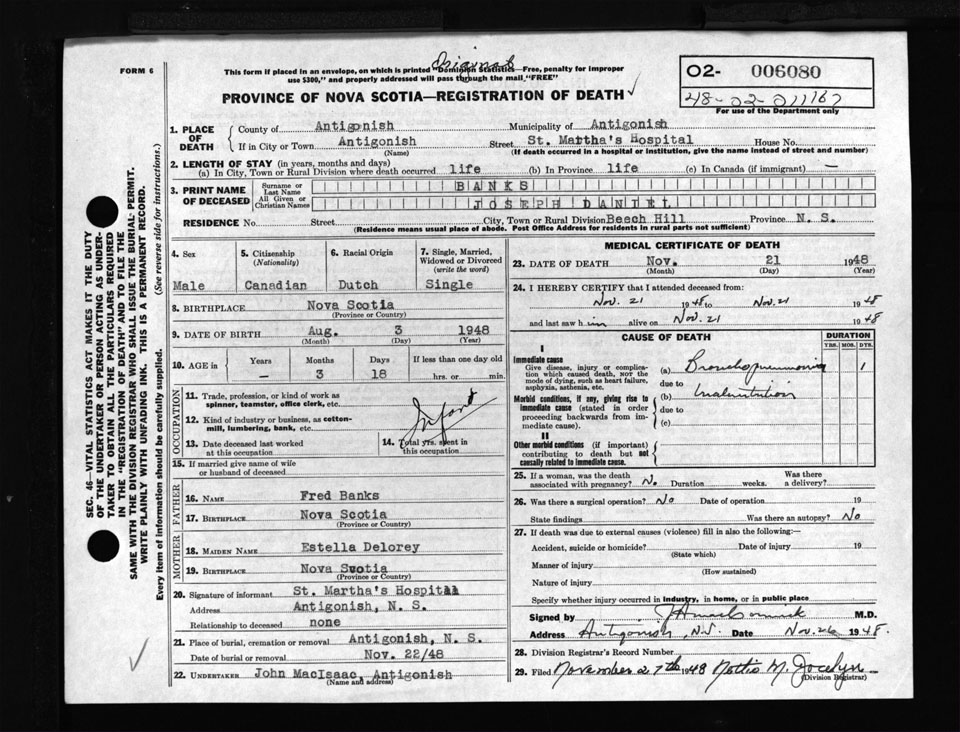 FORM 6
Original
This form if placed in an envelope, on which is printed "Dominion Statistics—Free, penalty for improper
use $300," and properly addressed will pass through the mail, "FREE"
PROVINCE OF NOVA SCOTIA—REGISTRATION OF DEATH ✓
O2- 006080
48-02-011167
For use of the Department only
1. PLACE OF DEATH
County of Antigonish Municipality of Antigonish
If in City or Town Antigonish Street St. Martha's Hospital House No.
(Name) (If death occurred in a hospital or institution, give the name instead of street and number)
2. LENGTH OF STAY (in years, months and days)
(a) In City, Town or Rural Division where death occurred life (b) In Province life (c) In Canada (if immigrant) —
3. PRINT NAME OF DECEASED
Surname or Last Name BANKS
All Given or Christian Names JOSEPH DANIEL
RESIDENCE No. Street City, Town or Rural Division Beech Hill Province N. S.
(Residence means usual place of abode. Post Office Address for residents in rural parts not sufficient)
4. Sex
Male
5. Citizenship
(Nationality)
Canadian
6. Racial Origin
Dutch
7. Single, Married, Widowed or Divorced
(write the word)
Single
8. BIRTHPLACE Nova Scotia
(Province or Country)
9. DATE OF BIRTH Aug. 3 1948
(Month) (Day) (Year)
10. AGE in Years Months Days If less than one day old
— 3 18 hrs. or min.
OCCUPATION
11. Trade, profession, or kind of work as
spinner, teamster, office clerk, etc.
Infant
12. Kind of industry or business, as cotton-
mill, lumbering, bank, etc.
13. Date deceased last worked
at this occupation
14. Total yrs. spent in
this occupation
15. If married give name of wife
or husband of deceased
FATHER
16. NAME Fred Banks
17. BIRTHPLACE Nova Scotia
(Province or Country)
MOTHER
18. MAIDEN NAME Estella Delorey
19. BIRTHPLACE Nova Svotia
(Province or Country)
20. Signature of informant St. Martha's Hospital
Address Antigonish, N. S.
Relationship to deceased none
21. Place of burial, cremation or removal Antigonish, N. S.
Date of burial or removal Nov. 22/48
22. UNDERTAKER John MacIsaac, Antigonish
(Name and address)
MEDICAL CERTIFICATE OF DEATH
23. DATE OF DEATH Nov. 21 1948
(Month) (Day) (Year)
24. I HEREBY CERTIFY that I attended deceased from:
Nov. 21 1948 to Nov. 21 1948
and last saw him alive on Nov. 21 1948
CAUSE OF DEATH
DURATION
YRS. MOS. DYS.
I
Immediate cause
Give disease, injury or complica-
tion which caused death, NOT the
mode of dying, such as heart failure,
asphyxia, asthenia, etc.
(a) Bronchopneumonia 1
due to
Morbid conditions, if any, giving rise to
immediate cause (stated in order
proceeding backwards from im-
mediate cause).
(b) Malnutrition
due to
(c)
II
Other morbid conditions (if important)
contributing to death but not
causally related to immediate cause.
25. If a woman, was the death
associated with pregnancy? No Duration weeks. Was there
a delivery?
26. Was there a surgical operation? No Date of operation 19
State findings Was there an autopsy? No
27. If death was due to external causes (violence) fill in also the following:—
Accident, suicide or homicide? Date of injury 19
(State which)
Manner of injury
(How sustained)
Nature of injury
Specify whether injury occurred in industry, in home, or in public place
Signed by M.D.
Address Antigonish, N.S. Date Nov. 26 1948.
28. Division Registrar's Record Number
29. Filed November 27th 1948 Nottie M. Jocelyn
(Division Registrar)
SEC. 46—VITAL STATISTICS ACT MAKES IT THE DUTY
OF THE UNDERTAKER OR PERSON ACTING AS UNDER-
TAKER TO OBTAIN ALL THE PARTICULARS REQUIRED
IN THE "REGISTRATION OF DEATH" AND TO FILE THE
SAME WITH THE DIVISION REGISTRAR WHO SHALL ISSUE THE BURIAL PERMIT.
WRITE PLAINLY WITH UNFADING INK. THIS IS A PERMANENT RECORD.
Every item of information should be carefully supplied. (See reverse side for instructions.)